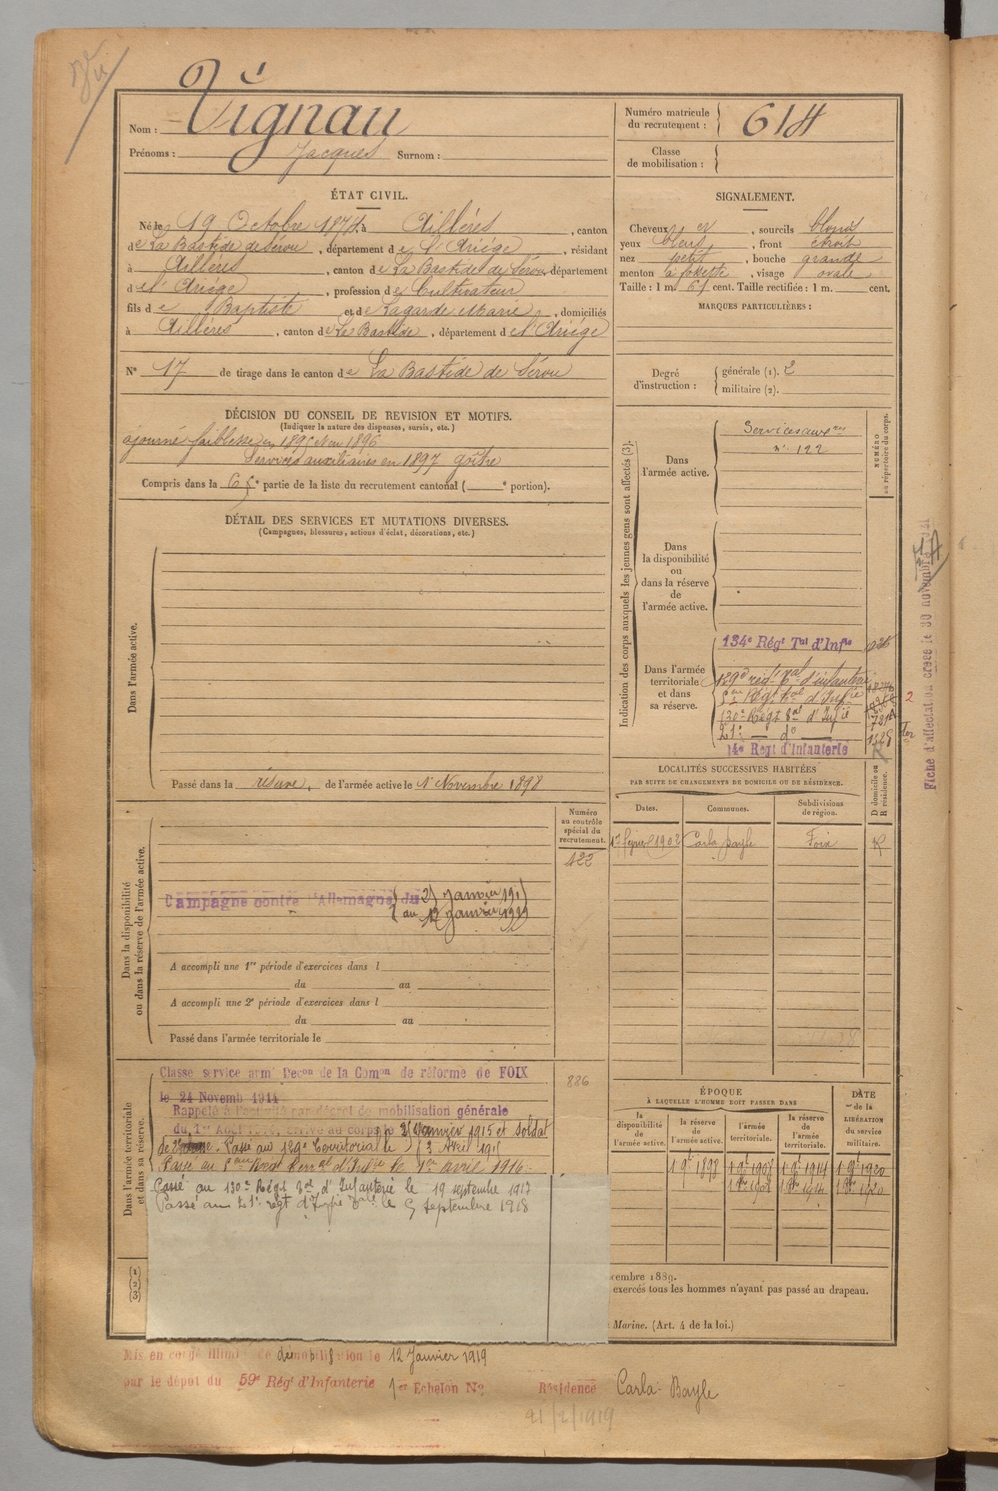 Vu
Nom : Vignau
Prénoms : Jacques Surnom :
Numéro matricule
du recrutement : 614
Classe
de mobilisation :
ÉTAT CIVIL.
Né le 19 Octobre 1874, à Aillères, canton
de La Bastide de Sérou, département de l'Ariège, résidant
à Aillères, canton de La Bastide de Sérou, département
de l'Ariège, profession de Cultivateur
fils de Baptiste et de Lagarde Marie, domiciliés
à Aillères, canton de La Bastide, département de l'Ariège
N° 17 de tirage dans le canton de La Bastide de Sérou
SIGNALEMENT.
Cheveux et, sourcils blonds
yeux bleus, front étroit
nez petit, bouche grande
menton à fossette, visage ovale.
Taille : 1 m. 61 cent. Taille rectifiée : 1 m. cent.
MARQUES PARTICULIÈRES :
Degré
d'instruction :
générale (1). 2
militaire (2).
DÉCISION DU CONSEIL DE REVISION ET MOTIFS.
(Indiquer la nature des dispenses, sursis, etc.)
ajourné faiblesse en 1895 et en 1896
Services auxiliaires en 1897 goître
Compris dans la 6e partie de la liste du recrutement cantonal ( e portion).
DÉTAIL DES SERVICES ET MUTATIONS DIVERSES.
(Campagnes, blessures, actions d'éclat, décorations, etc.)
Dans l'armée active.
Passé dans la réserve de l'armée active le 1er Novembre 1898
Indication des corps auxquels les jeunes gens sont affectés (3).
NUMÉRO
au répertoire du corps.
Dans
l'armée active.
Services auxres
n° 122
Dans
la disponibilité
ou
dans la réserve
de
l'armée active.
Dans l'armée
territoriale
et dans
sa réserve.
134e Régt Tal d'Infie
129e régt tal d'infanterie
8me Régt tal d'Infie
130e Régt tal d'Infie
21e — do —
14e Regt d'Infanterie
Fiche d'affectation créée le 30 novembre
LOCALITÉS SUCCESSIVES HABITÉES
PAR SUITE DE CHANGEMENTS DE DOMICILE OU DE RÉSIDENCE.
D domicile ou
R résidence.
Dates. Communes. Subdivisions
de région.
17 février 1902 Carla bayle Foix R
Numéro
au contrôle
spécial du
recrutement.
122
Dans la disponibilité
ou dans la réserve de l'armée active.
Campagne contre l'Allemagne du 21 Janvier 191
au 12 Janvier 1919
A accompli une 1re période d'exercices dans l
du au
A accompli une 2e période d'exercices dans l
du au
Passé dans l'armée territoriale le
Dans l'armée territoriale
et dans sa réserve.
886
Classé service armé Décon de la Comon de réforme de FOIX
le 24 Novemb 1914
Rappelé à l'activité par décret de mobilisation générale
du 1er Août 1914, arrivé au corps le 21 Janvier 1915 et soldat
de 2e. Passé au 129e Territorial le 3 Avril 191
Passé au 8me Régt Terral d'Infie le 1er avril 1916
Passé au 130e Régt tal d'Infanterie le 19 septembre 1917
Passé au 21e régt d'Infie tale le 5 septembre 1918
ÉPOQUE
À LAQUELLE L'HOMME DOIT PASSER DANS
DATE
de la
LIBÉRATION
du service
militaire.
la
disponibilité
de l'armée
active.
la réserve
de
l'armée active.
l'armée
territoriale.
la réserve
de
l'armée
territoriale.
1 9e 1898 1 9e 1908 1 9e 1914 1 9e 1920
(1)
(2)
(3)
cembre 1889.
exercés tous les hommes n'ayant pas passé au drapeau.
Marine. (Art. 4 de la loi.)
Mis en congé illimité de démobilisation le 12 Janvier 1919
par le dépôt du 59e Régt d'Infanterie 1er Echelon No Résidence Carla-Bayle
21/2/1919